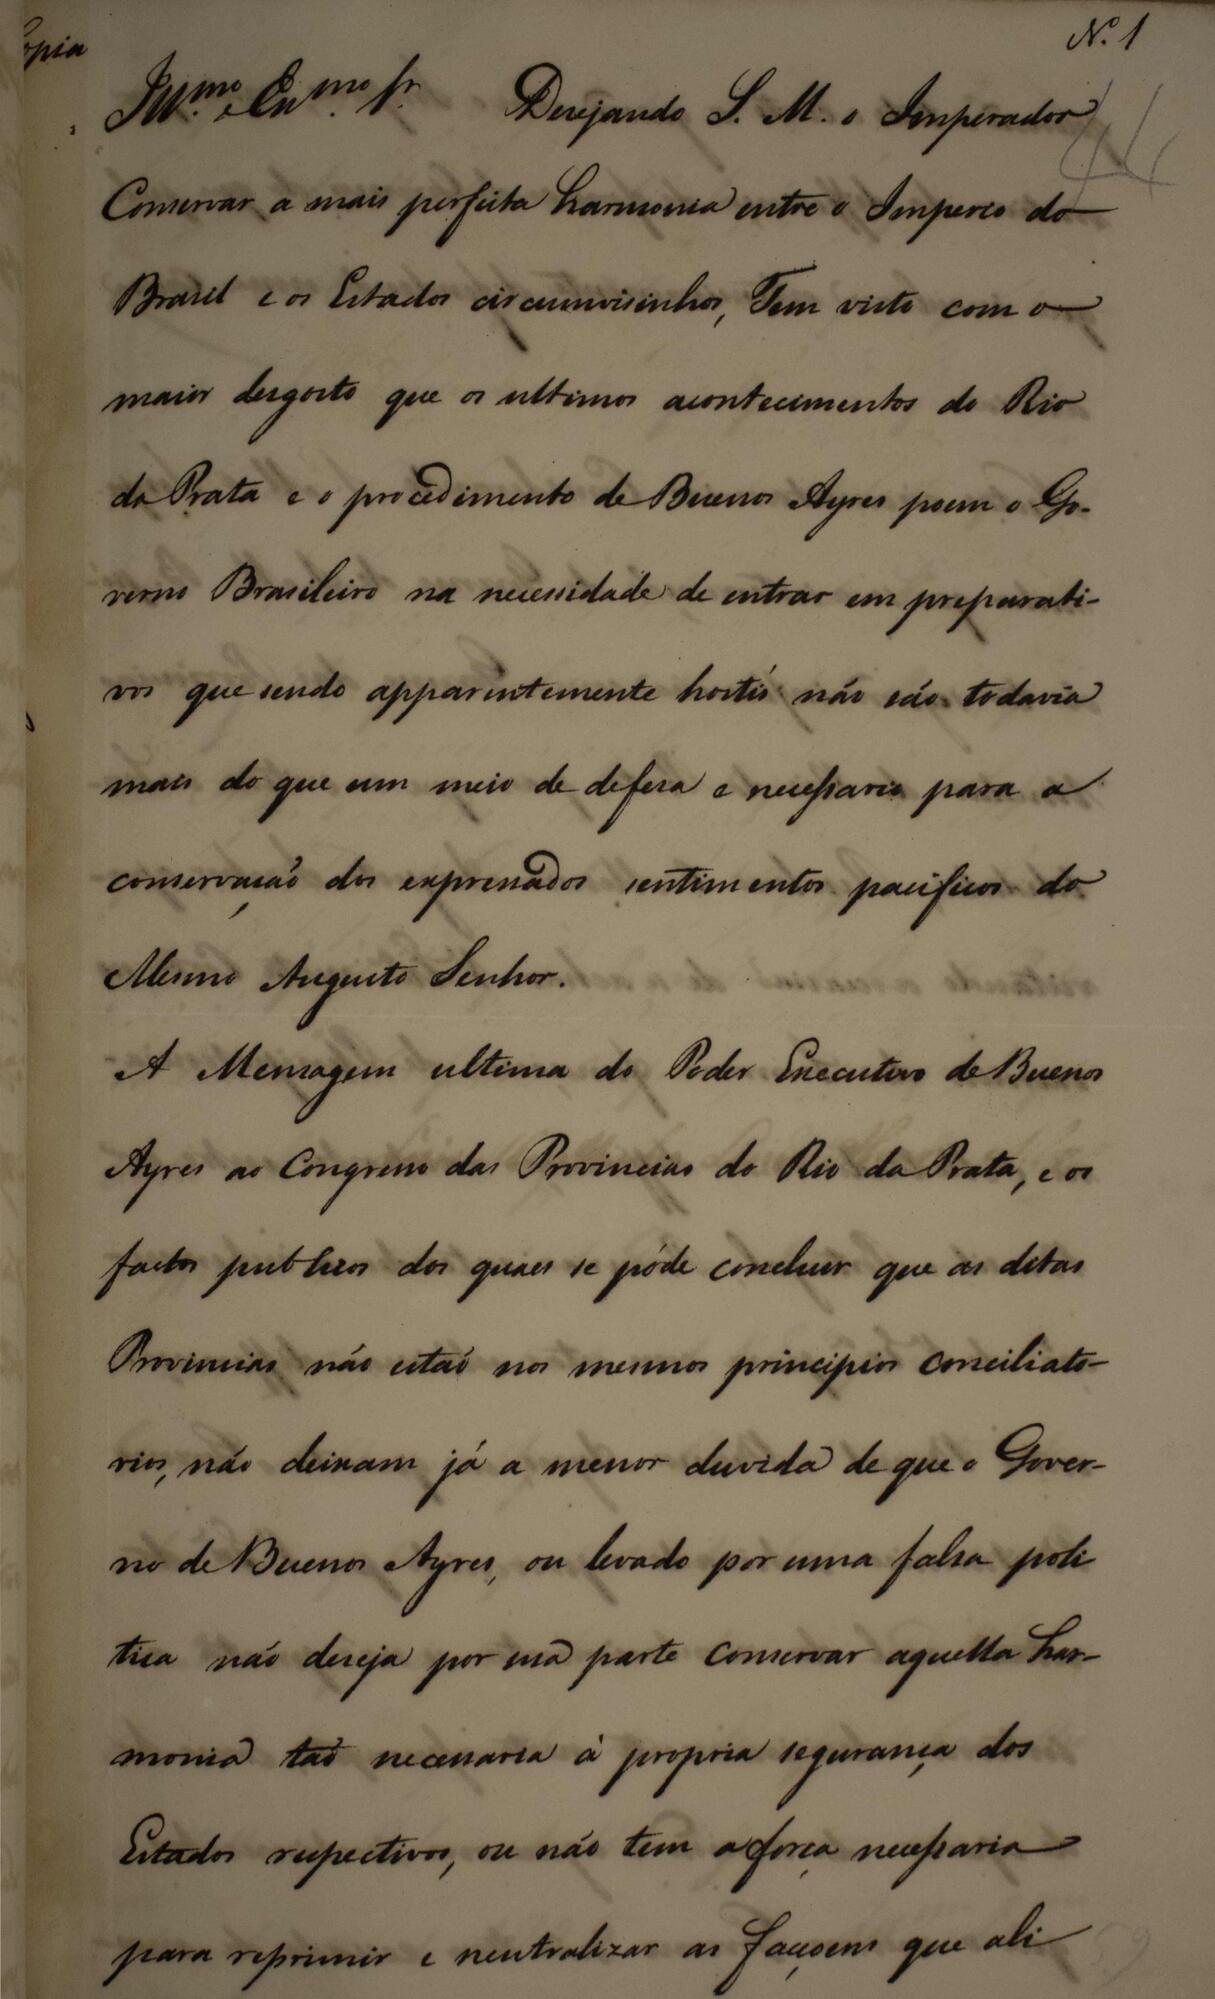 Copia
N.º 1
Ill.mo e Ex.mo Sr. Desejando S. M. o Imperador
Conservar a mais perfeita harmonia entre o Imperio do
Brasil e os Estados circumvisinhos, Tem visto com o
maior desgosto que os ultimos acontecimentos do Rio
da Prata e o procedimento de Buenos Ayres poem o Go-
verno Brasileiro na necessidade de entrar em preparati-
vos que sendo apparentemente hostis não são todavia
mais do que um meio de defesa e necessario para a
conservação dos expressados sentimentos pacificos do
Mesmo Augusto Senhor.
A Mensagem ultima do Poder Executivo de Buenos
Ayres ao Congresso das Provincias do Rio da Prata, e os
factos publicos dos quaes se póde concluir que as ditas
Provincias não estaõ nos mesmos principios conciliato-
rios, não deixam já a menor duvida de que o Gover-
no de Buenos Ayres, ou levado por uma falsa poli
tica não deseja por sua parte conservar aquella har-
monia taõ necessaria á propria segurança dos
Estados respectivos, ou não tem a força necessaria
para reprimir e neutralizar as facçoens que ali